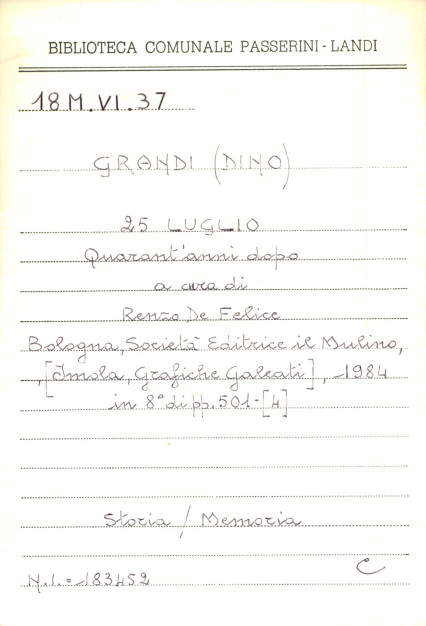 BIBLIOTECA COMUNALE PASSERINI - LANDI
18 M. VI. 37
GRANDI (DINO)
25 LUGLIO
Quarant'anni dopo
a cura di
Renzo De Felice
Bologna, Società Editrice il Mulino,
, [Imola, Grafiche Galeati], 1984
in 8° di pp. 501-[4]
Storia / Memoria
C
N.I.= 183452